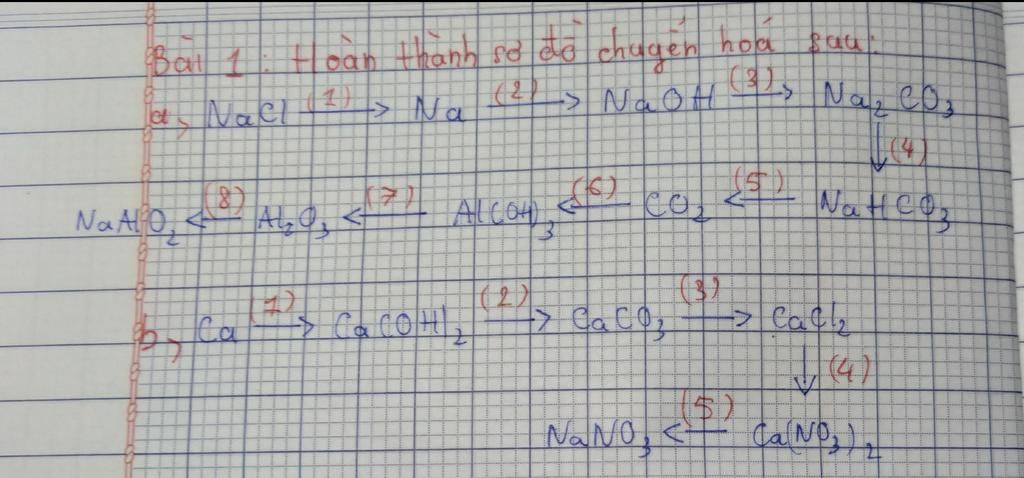 Bài 1: Hoàn thành sơ đồ chuyển hoá sau:
a, NaCl (1)→ Na (2)→ NaOH (3)→ Na₂CO₃
↓(4)
NaAlO₂ ←(8) Al₂O₃ ←(7) Al(OH)₃ ←(6) CO₂ ←(5) NaHCO₃
b, Ca (1)→ Ca(OH)₂ (2)→ CaCO₃ (3)→ CaCl₂
↓(4)
NaNO₃ ←(5) Ca(NO₃)₂